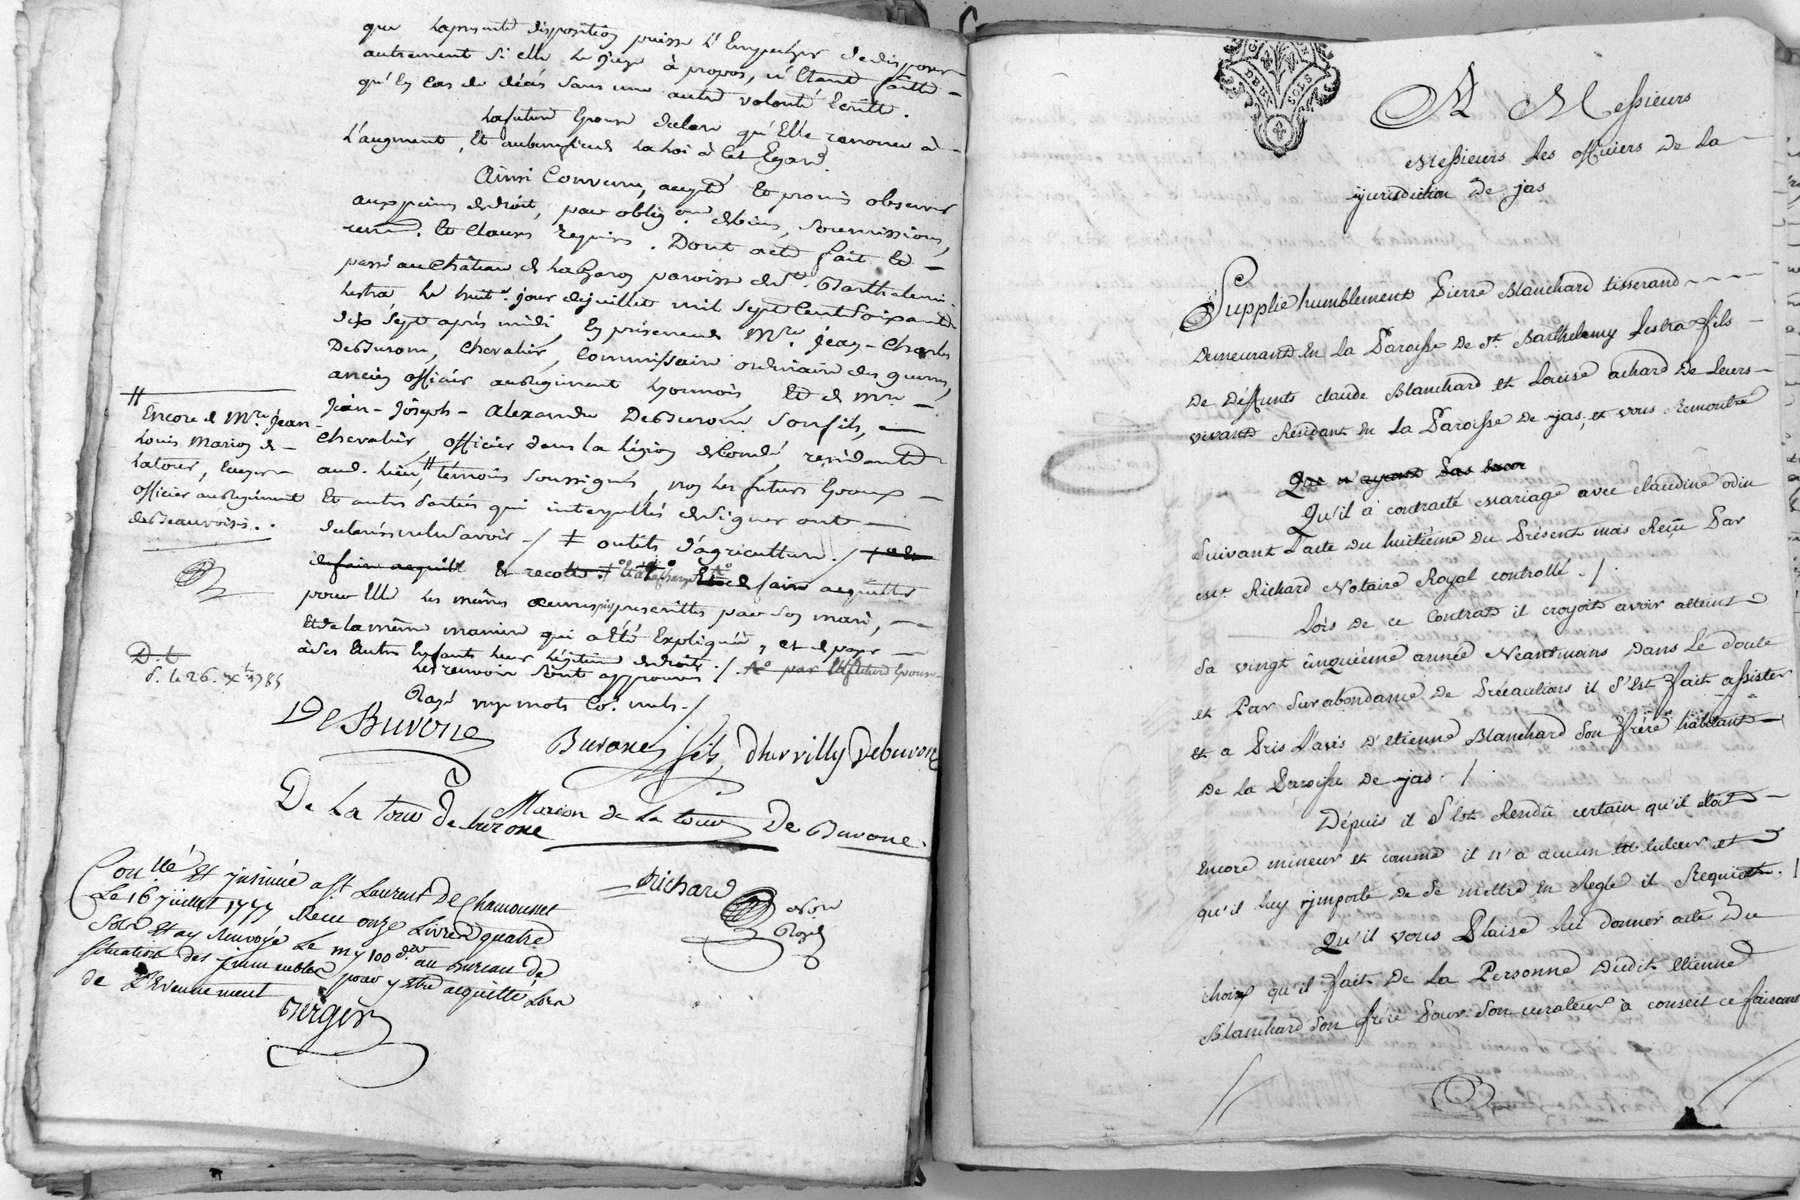 que la presente disposition puisse l'Empecher de disposer
autrement si elle le juge à propos, n'etant faitte
qu'en cas de décés sans une autre volonté Ecritte.
La future Epouse declare qu'Elle renonce à
l'augment, Et au benefice de la loi à cet Egard
Ainsi Convenu, accepté Et promis observer
aux peines de droit, par oblig.on de biens, soumissions,
renon. Et clauses requises. Dont acte fait Et
passé au château de paroisse de St. Barthelemi
Lestra, Le huit.e jour de juillet mil sept Cent Soixante
dix sept après midi, En présence de Mre. jean-Charles
DeBurone, Chevalier, Commissaire ordinaire des guerres,
ancien officier au Regiment Lyonnois, Et de Mre
jean-joseph-alexandre DeBurone son fils,
Chevalier, officier dans la légion de Condé, residents
aud. lieu, # témoins soussignés, non les futurs Epoux
Et autres parties qui interpellés de signer ont
declaré ne le savoir ./ ‡ outils d'agriculture ./
de faire acquitter
pour Elle les mêmes prescrittes par son mari,
Et de la même maniere qui a Eté Expliquée, et de payer
à ses autres Enfants leur légitime de droits ./
Les renvois sont approuvés ./ par la future Epouse
Rayé mots Co. nuls ./
#
Encore de Mre. jean-
Louis Marion de
Latour, Ecuyer
officier au Regiment
de Beauvoisis.
D. C
d. le 26. xbre 1785
DeBurone
Burone fils, dhervilly deburone
De La tour de burone
Marion de la tour De Burone.
Richard
Nore
Royal
Con.llé Et insinué a St. Laurent De Chamousset
Le 16 juillet 1777 Recu onze Livres quatre
Sols Et ay Renvoyé Le au Bureau de
situation des immeubles pour y Etre acquitté Lors
de L'Evennement
Berger
DEUX SOLS
A Messieurs
Messieurs les officiers de la
jurisdiction de jas
Supplie humblement Pierre Blanchard tisserand
Demeurant En la Paroisse De St. Barthelemy Lestra fils
De Deffunts claude Blanchard et Louise achard De Leurs
vivant Residant En la Paroisse De jas, et vous Remontre
Que n'ayant Pas
Qu'il a contracté Mariage avec claudine odin
Suivant L'acte Du huitieme Du Présent mois Reçu Par
Me. Richard Notaire Royal controllé ./.
Lors De ce Contrat il croyoit avoir atteint
Sa vingt cinquiéme année Néantmoins Dans Le doute
et Par Surabondance De Précautions il s'Est fait assister
et a Pris L'avis D'etienne Blanchard Son frere habitant
De la Paroisse De jas ./
Dépuis il s'Est Rendu certain qu'il étoit
Encore mineur et comme il n'a aucun tuteur et
qu'il luy importe De Se mettre En Regle il Requiert ./
Qu'il vous Plaise lui donner acte Du
choix qu'il fait De La Personne Dudit Etienne
Blanchard Son frére Pour Son curateur à conseil ce faisant